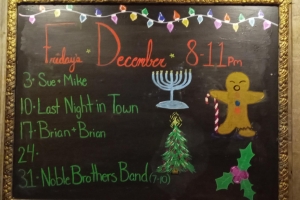 Friday's December 8-11pm
3- Sue + Mike
10- Last Night in Town
17- Brian + Brian
24-
31- Noble Brothers Band (7-10)